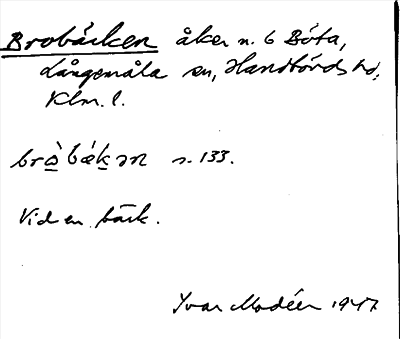 Brobäcken åker n. 6 Böta,
Långemåla sn, Handbörds hd,
Klm. l.
brò̲bæk̲ən s. 133.
Vid en bäck.
Yvar Modéer 1947